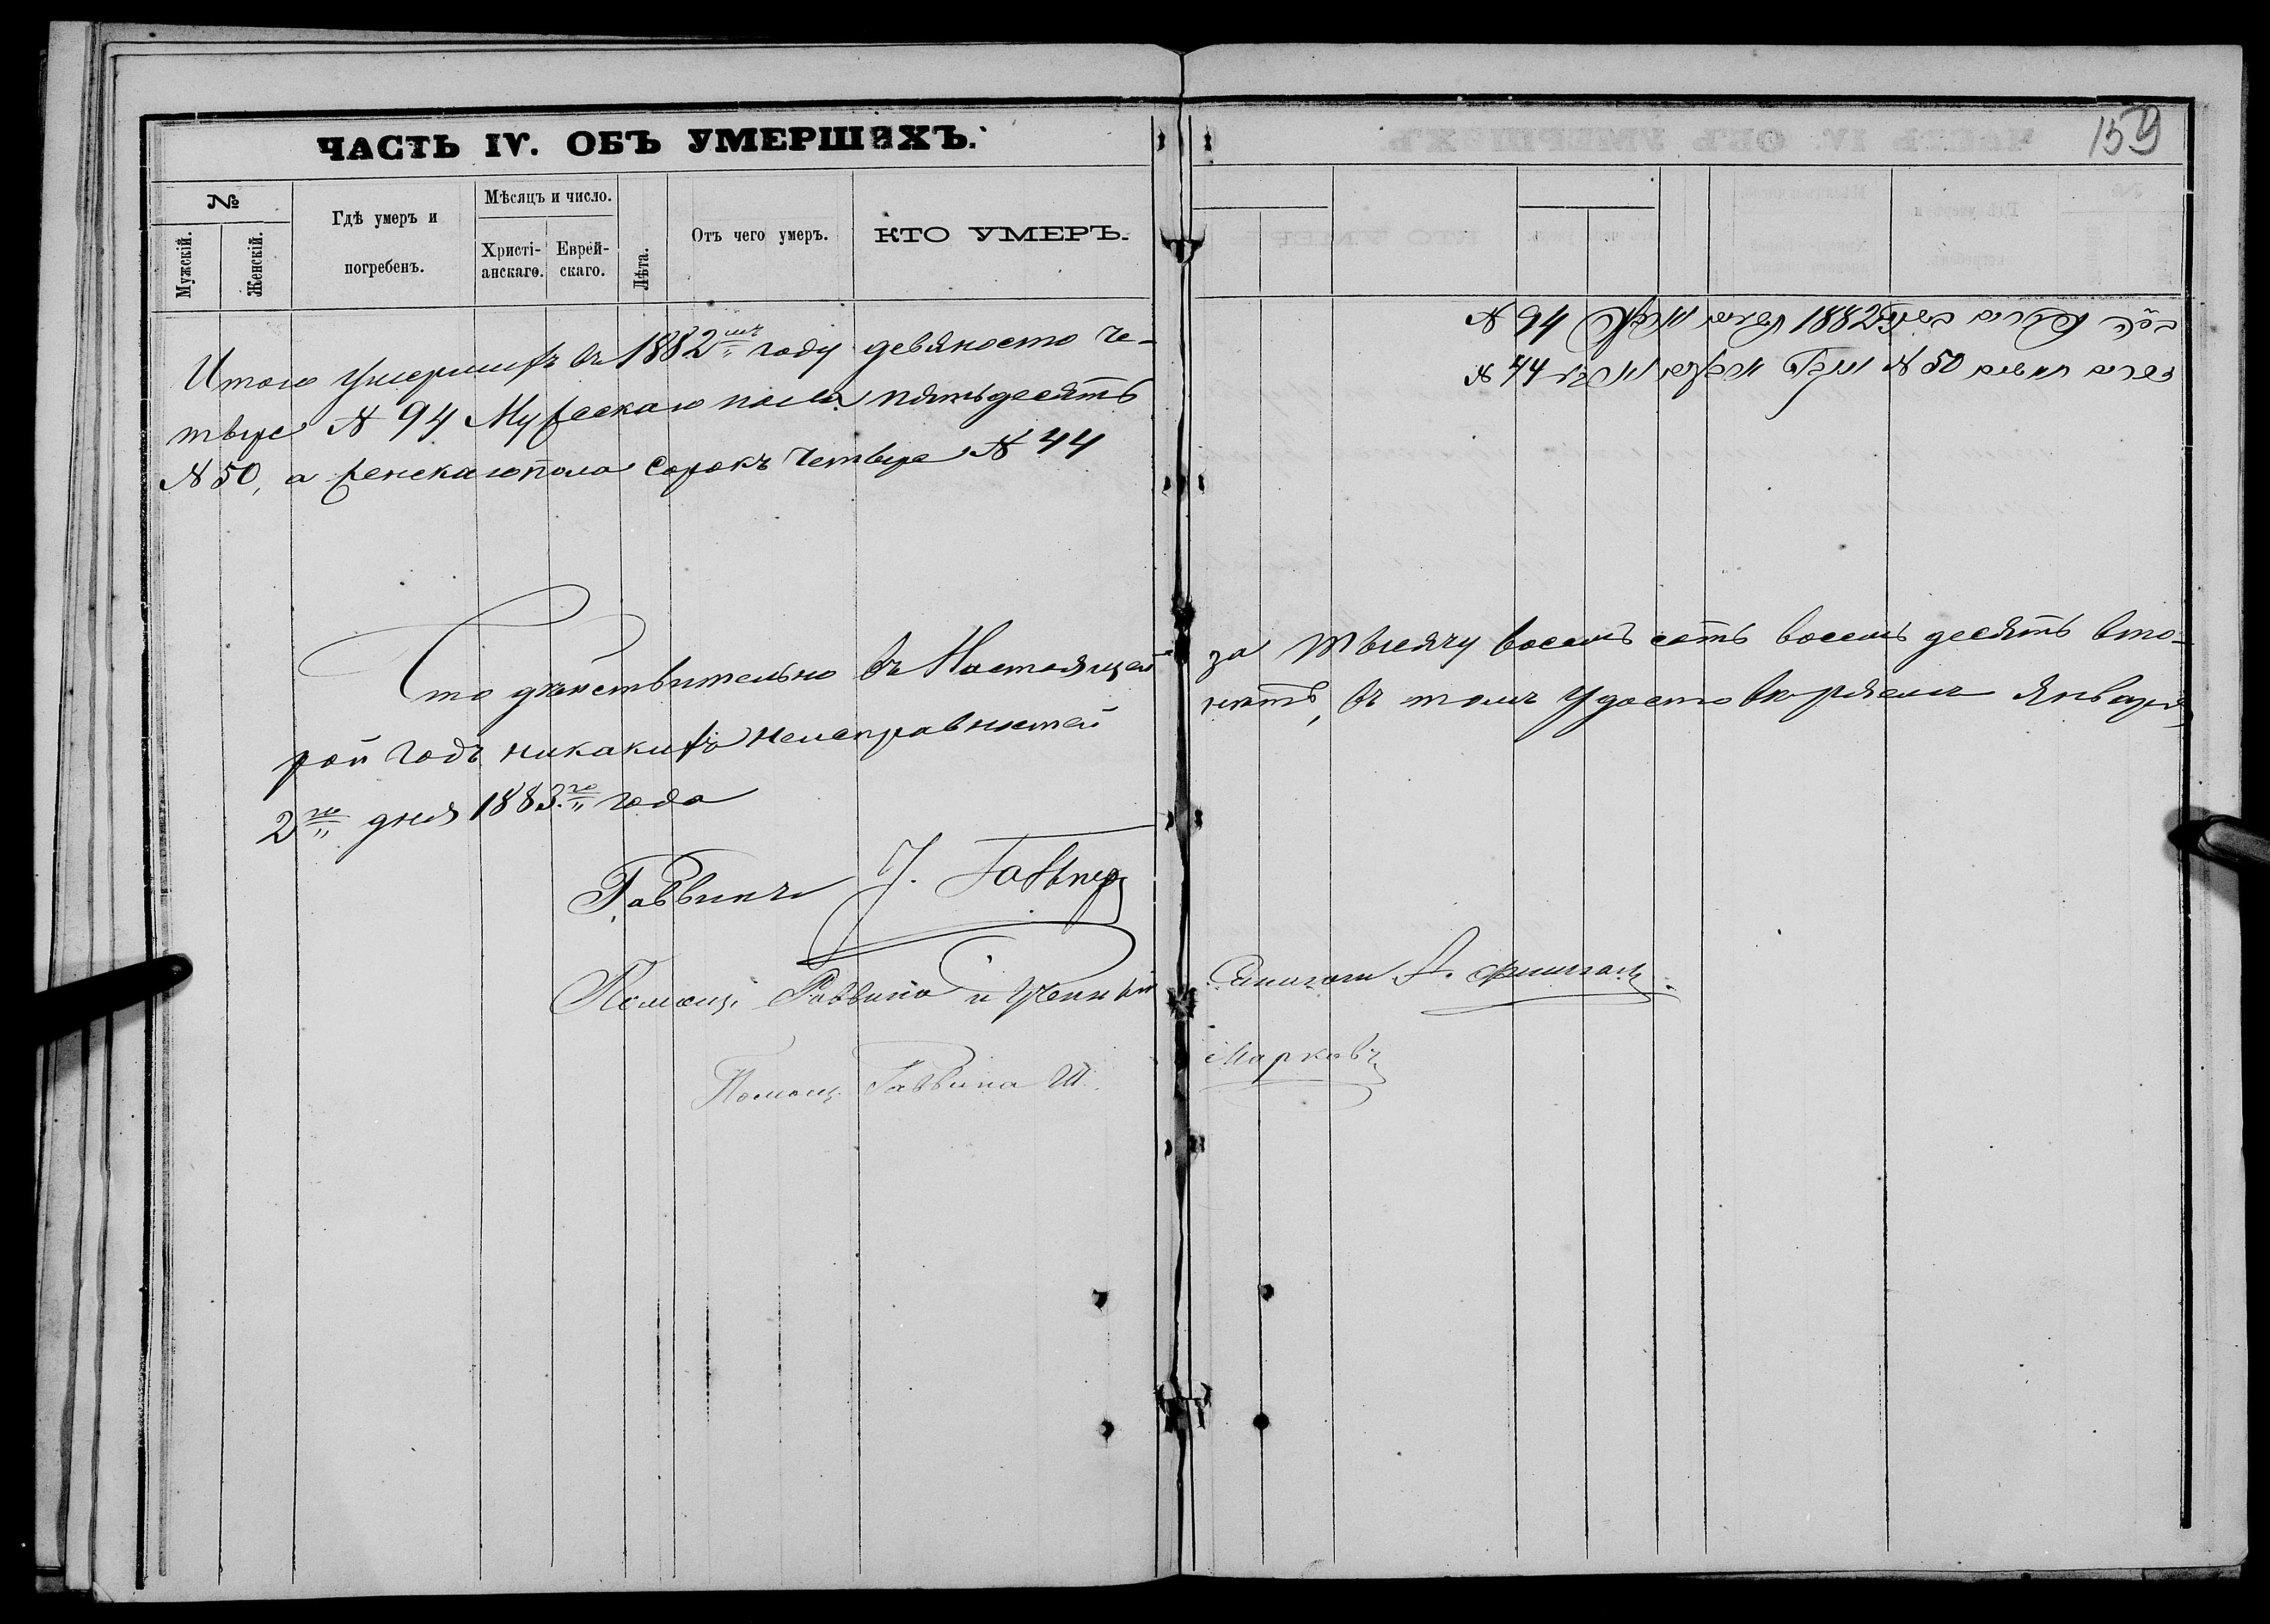 ЧАСТЬ IV. ОБЪ УМЕРШИХЪ.
159
№
Мужскій.
Женскій.
Гдѣ умеръ и погребенъ.
Мѣсяцъ и число.
Христі-анскаго.
Еврей-скаго.
Лѣта.
Отъ чего умеръ.
КТО УМЕРЪ.
Итого умершихъ въ 1882мъ году девяносто че-
тыре № 94 Мужескаго пола пятьдесятъ
№ 50, а женскаго пола сорокъ четыре № 44
1882 № 94
№ 50 № 44
Что дѣйствительно въ Настоящей за тысячу восемь сотъ восемь десятъ вто-
рой годъ никакихъ неисправностей нѣтъ, въ томъ удостовѣряемъ Января
2го дня 1883го года
Раввинъ
Помощ. Раввина и Ученый А.
Помощ. Раввина Ш. Марковъ